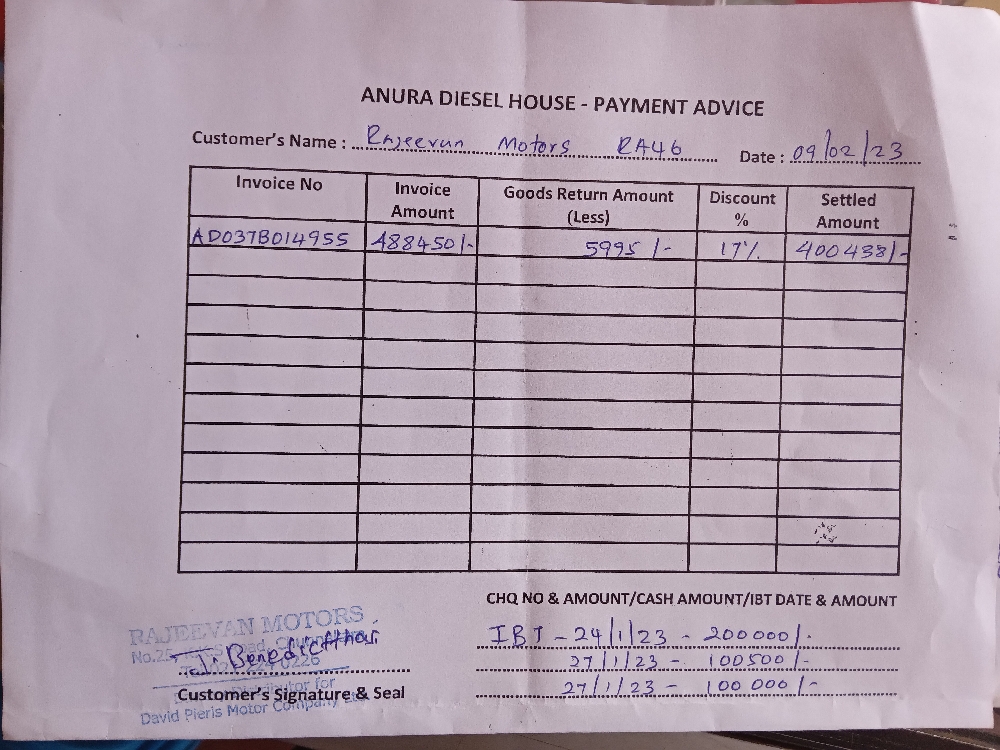 ANURA DIESEL HOUSE - PAYMENT ADVICE
Customer's Name : Rajeevan Motors RA46 Date : 09/02/23
Invoice No Invoice Amount Goods Return Amount (Less) Discount % Settled Amount
AD037B014955 488450/- 5995/- 17% 400438/-
CHQ NO & AMOUNT/CASH AMOUNT/IBT DATE & AMOUNT
IBT - 24/1/23 - 200000/-
27/1/23 - 100500/-
27/1/23 - 100000/-
RAJEEVAN MOTORS
No.25
J. Benedicthar
0226
for
Customer's Signature & Seal
David Pieris Motor Company